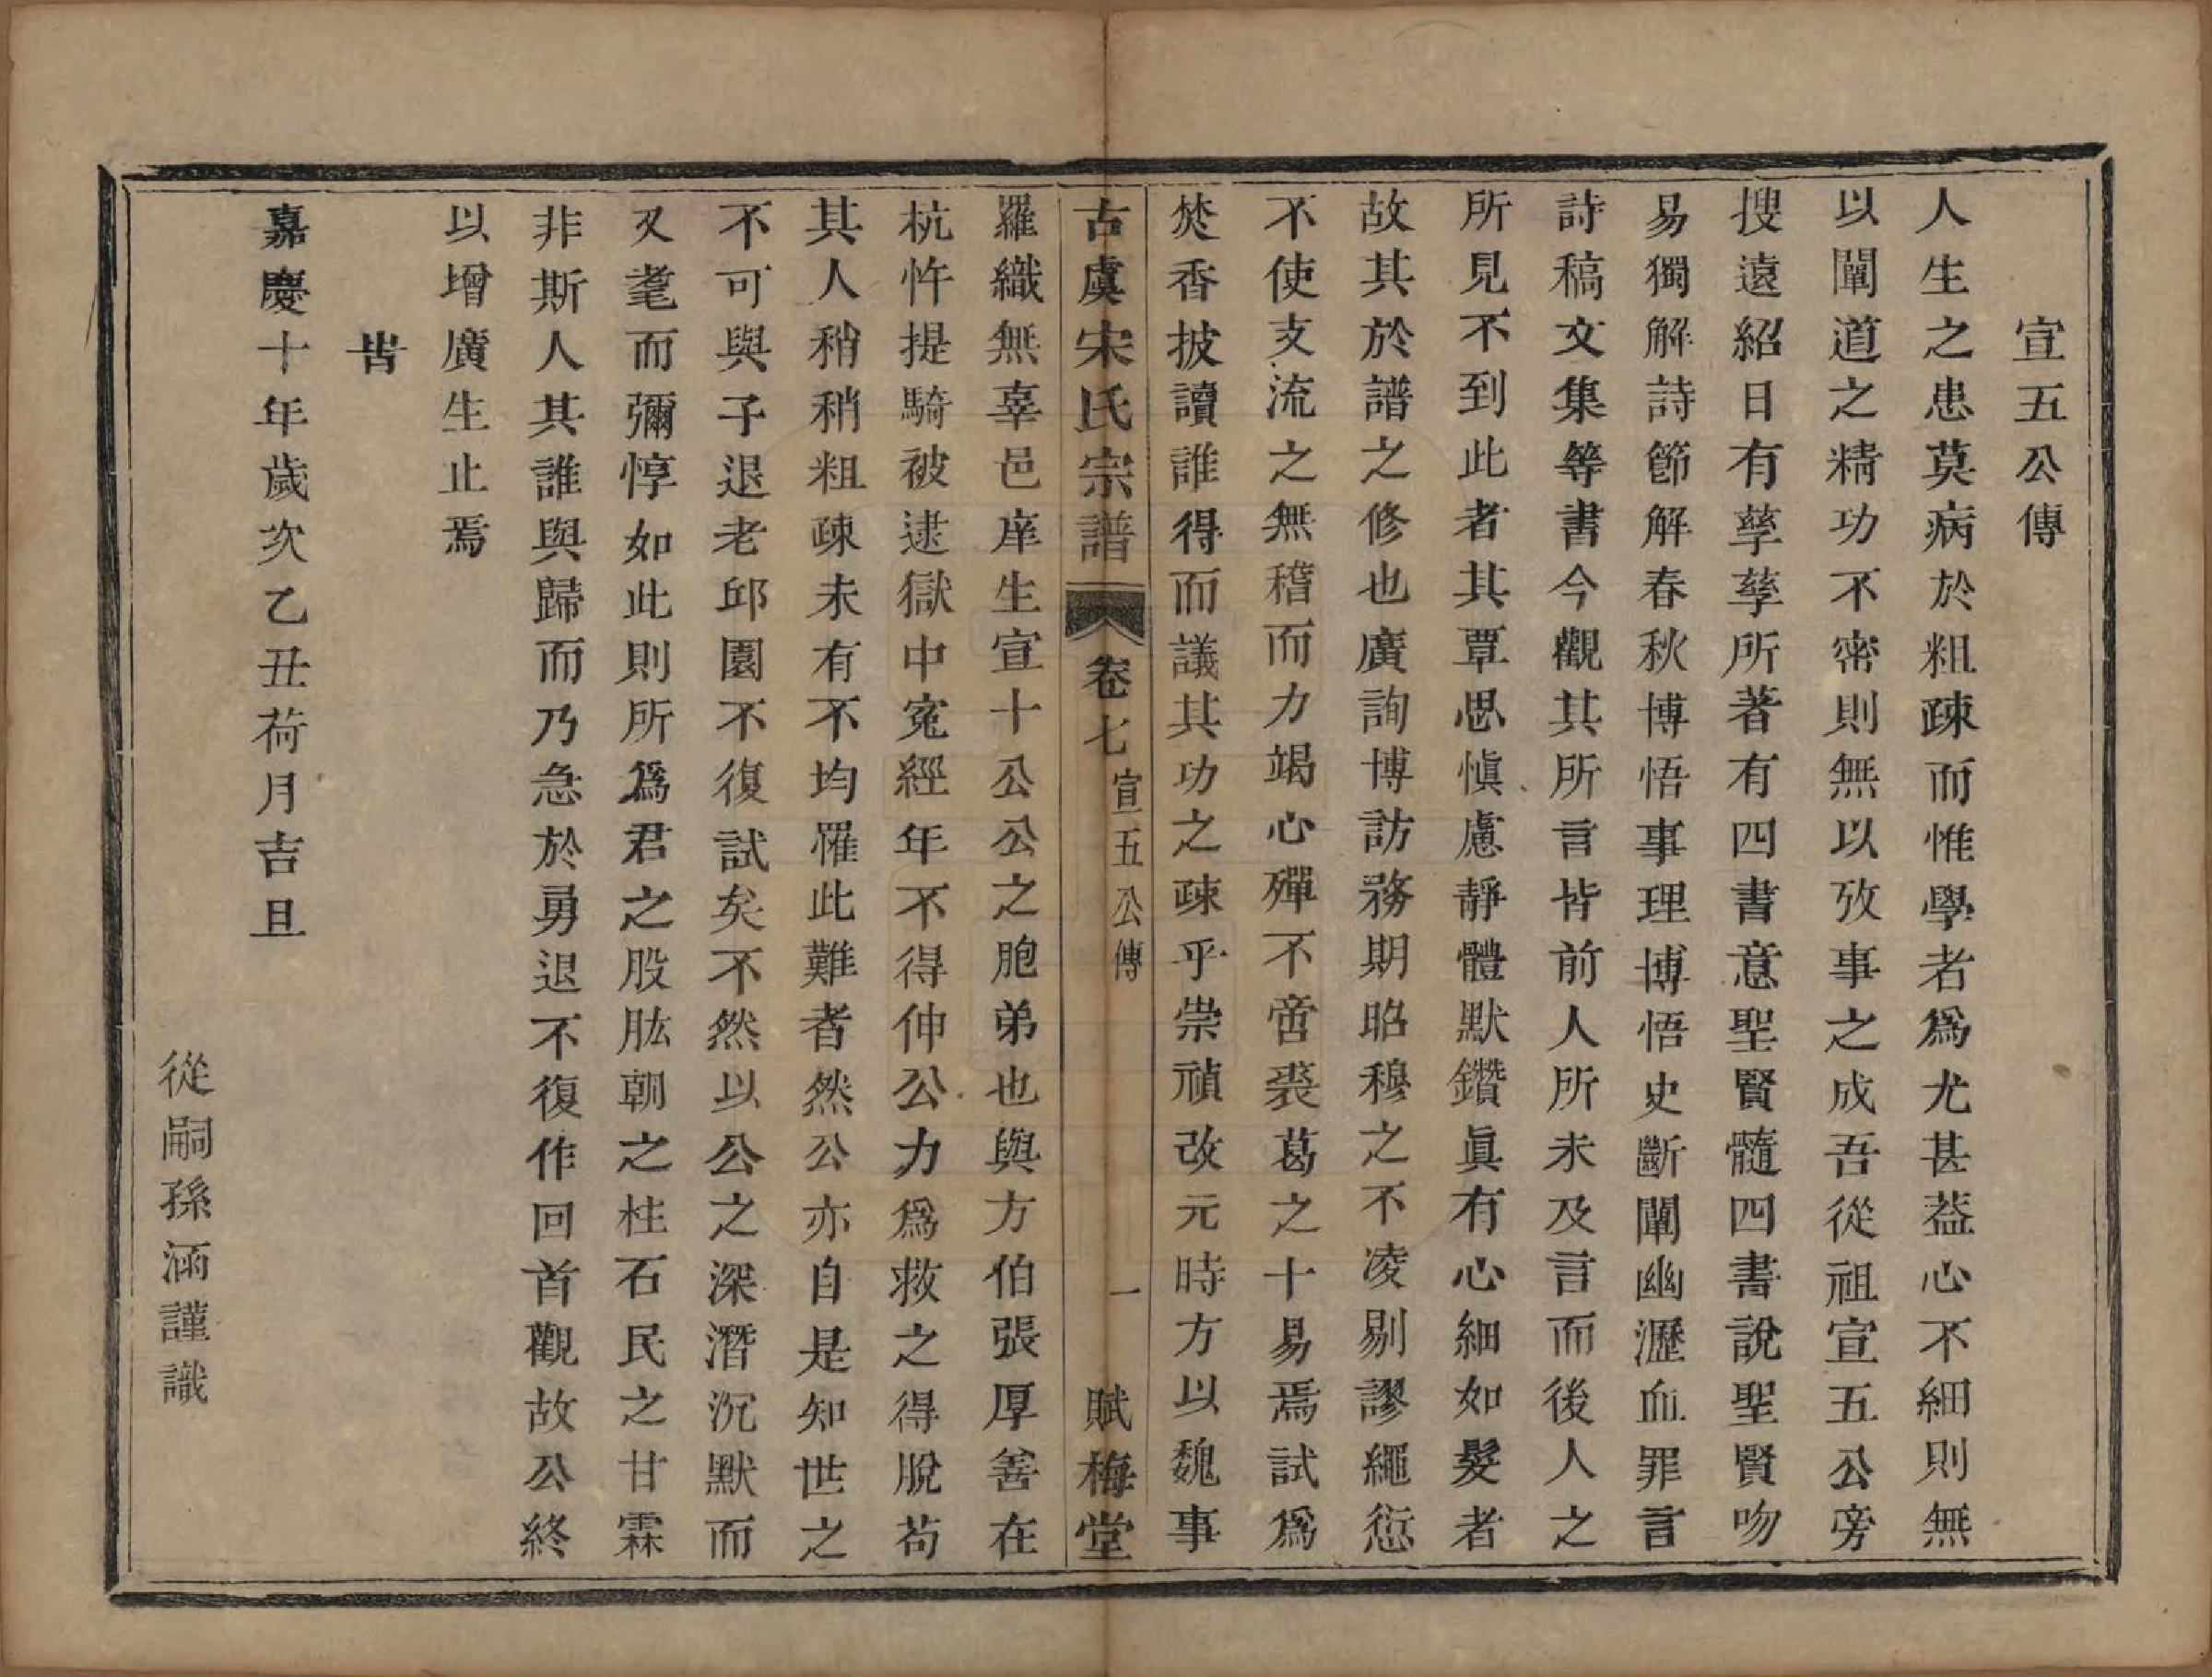 宣五公傳
人生之患莫病於粗疎而惟學者爲尤甚葢心不細則無
以闡道之精功不密則無以攷事之成吾從祖宣五公旁
搜遠紹日有孳孳所著有四書意聖賢髓四書說聖賢吻
易獨解詩節解春秋博悟事理博悟史斷闡幽瀝血罪言
詩稿文集等書今觀其所言皆前人所未及言而後人之
所見不到此者其覃思愼慮靜體默鑽眞有心細如髮者
故其於譜之修也廣詢博訪務期昭穆之不凌剔謬繩愆
不使支流之無稽而力竭心殫不啻裘葛之十易焉試爲
焚香披讀誰得而議其功之疎乎崇禎改元時方以魏事
古虞宋氏宗譜 卷七 宣五公傳 一 賦梅堂
羅織無辜邑庠生宣十公公之胞弟也與方伯張厚善在
杭忤提騎被逮獄中寃經年不得伸公力爲救之得脫苟
其人稍稍粗疎未有不均罹此難者然公亦自是知世之
不可與予退老邱園不復試矣不然以公之深潛沉默而
又耄而彌惇如此則所爲君之股肱朝之柱石民之甘霖
非斯人其誰與歸而乃急於勇退不復作回首觀故公終
以增廣生止焉
旹
嘉慶十年歲次乙丑荷月吉旦
從嗣孫涵謹識